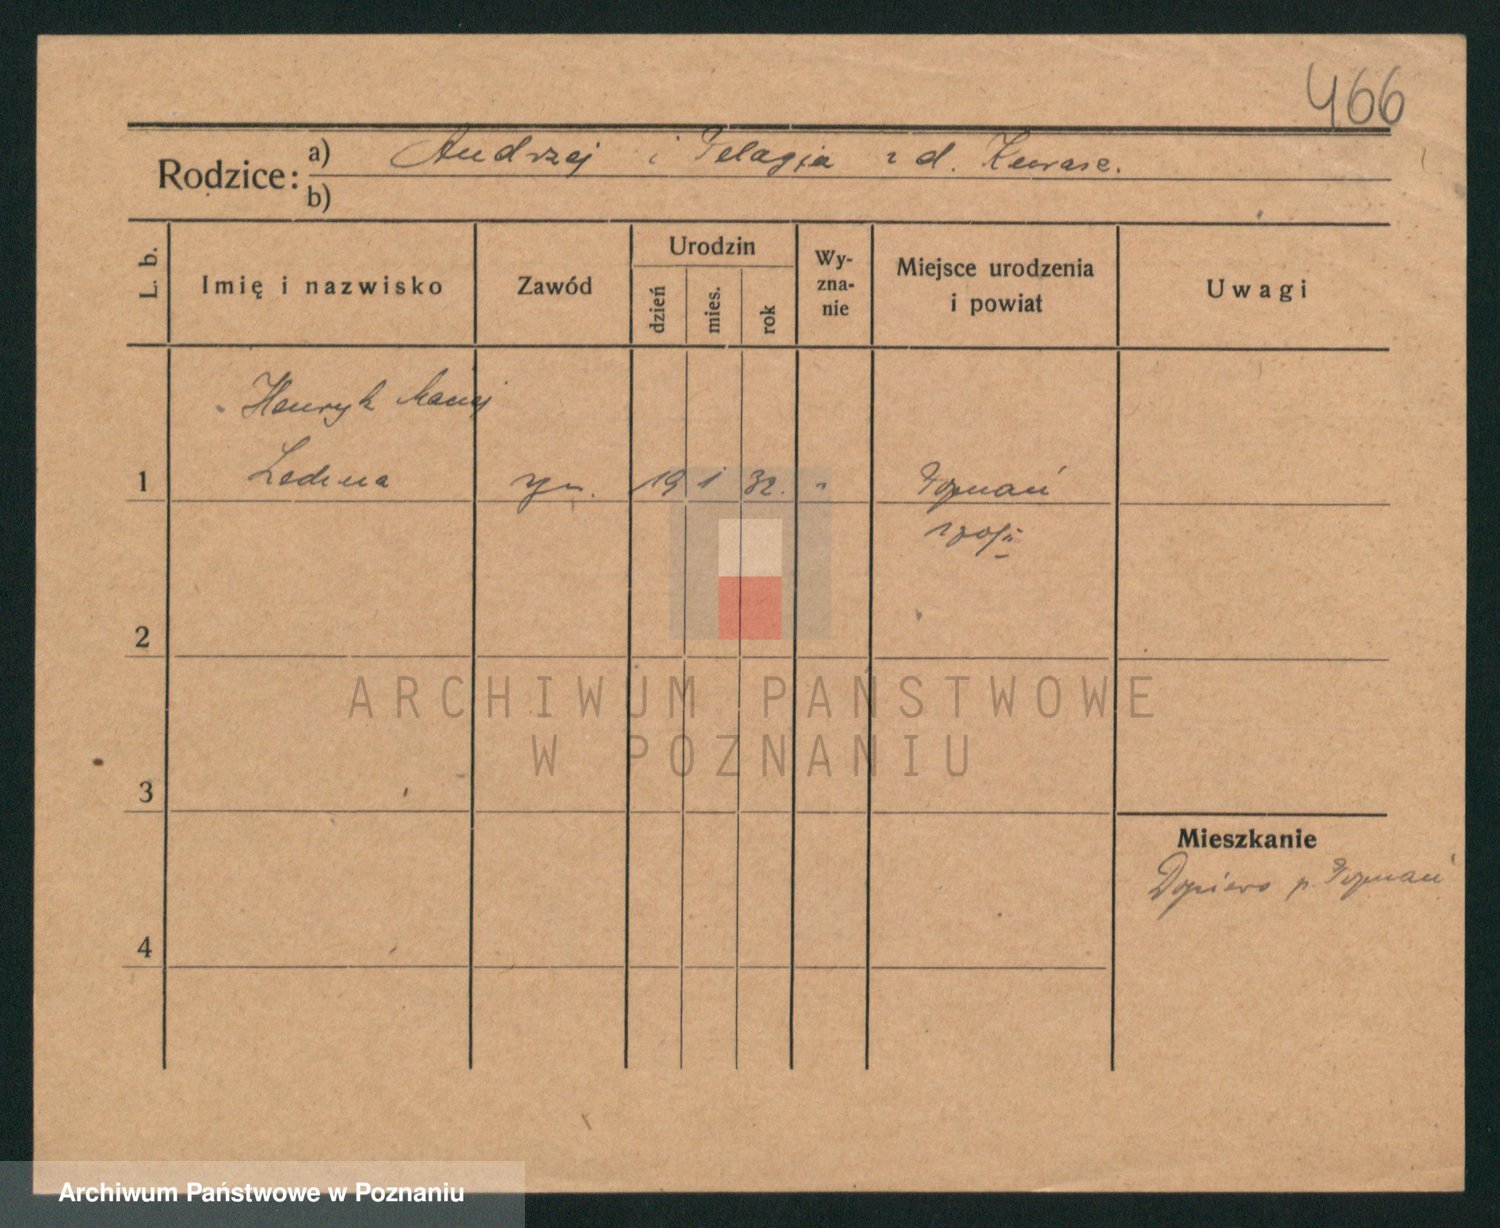 466
Rodzice: a) Andrzej i Pelagja z d.
b)
L. b.
Imię i nazwisko
Zawód
Urodzin
dzień
mies.
rok
Wy-
zna-
nie
Miejsce urodzenia
i powiat
Uwagi
Henryk Maciej
1 syn. 19 1 32. Poznań
2
3
4
Mieszkanie
Dopiewo p. Poznań
ARCHIWUM PAŃSTWOWE
W POZNANIU
Archiwum Państwowe w Poznaniu